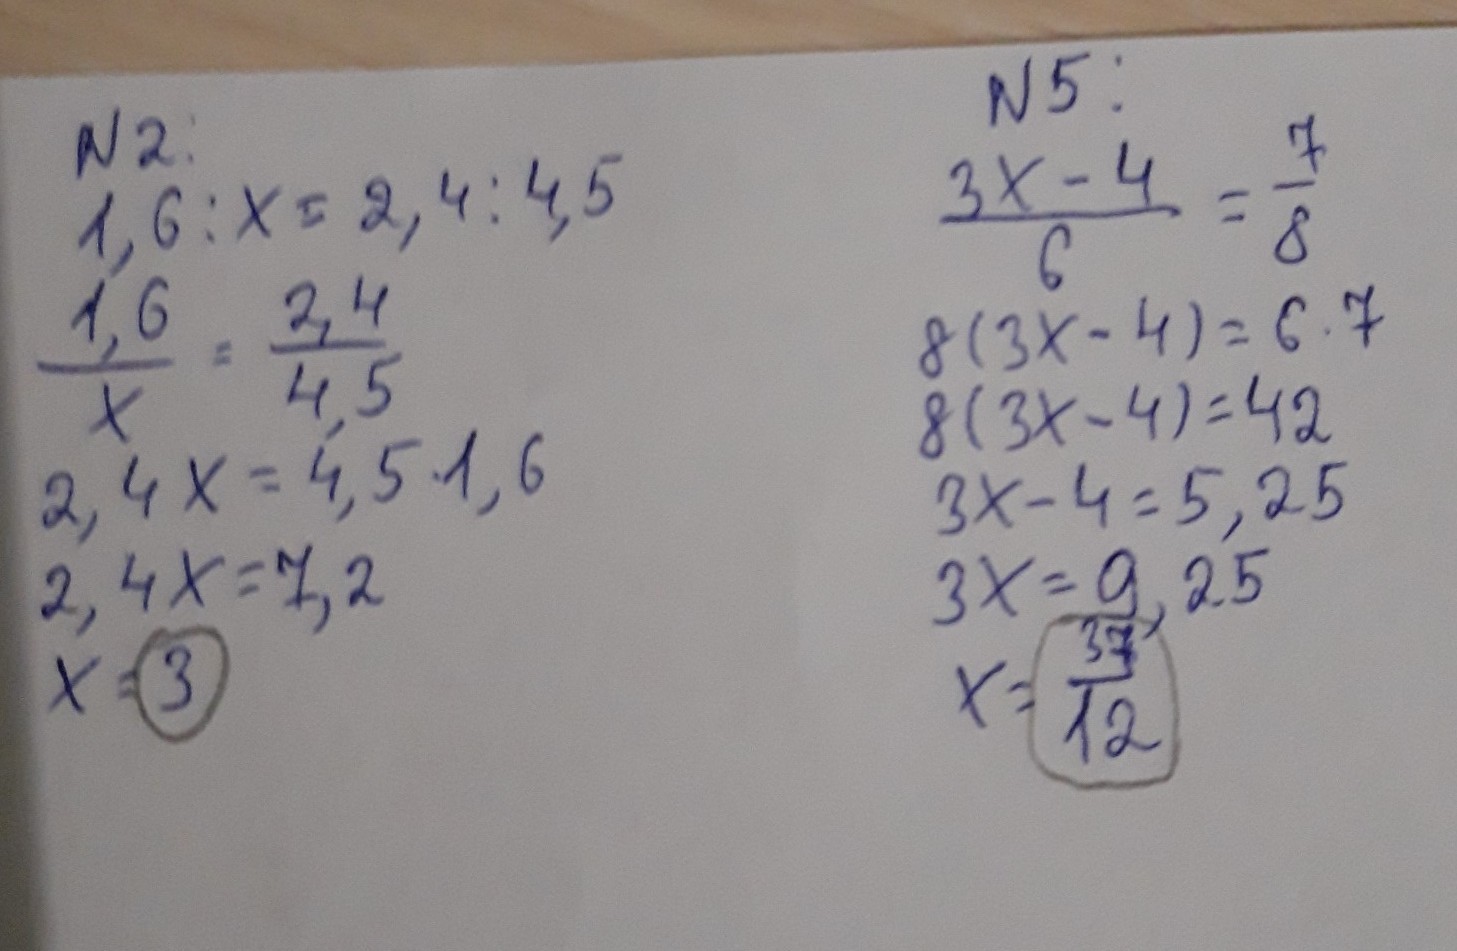 N2:
1,6:x=2,4:4,5
1,6/x=2,4/4,5
2,4x=4,5·1,6
2,4x=7,2
x=3
N5:
3x-4/6=7/8
8(3x-4)=6·7
8(3x-4)=42
3x-4=5,25
3x=9,25
x=37/12